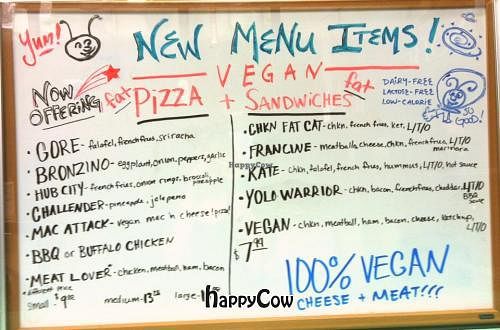 Yum!
NEW MENU ITEMS!
VEGAN
NOW OFFERING
fat PIZZA + fat SANDWICHES
DAIRY-FREE
LACTOSE-FREE
LOW-CALORIE
SO GOOD!
• GORE - falafel, french fries, sriracha
• BRONZINO - eggplant, onion, peppers, garlic
• HUB CITY - french fries, onion rings, broccoli, pineapple
• CHALLENDER - pineapple, jalapeno
• MAC ATTACK - vegan mac n cheese! pizza!
• BBQ or BUFFALO CHICKEN
• MEAT LOVER - chicken, meatball, ham, bacon
* different price
small $9.00 medium - large -
• CHKN FAT CAT - chkn, french fries, ket, L/T/O
• FRANCINE - meatballs, cheese, chkn, french fries, L/T/O marinara
• KATE - chkn, falafel, french fries, hummus, L/T/O, hot sauce
• YOLO WARRIOR - chkn, bacon, french fries, cheddar, L/T/O BBQ sauce
• VEGAN - chkn, meatball, ham, bacon, cheese, ketchup, L/T/O
$7.99
100% VEGAN
CHEESE + MEAT!!!
HappyCow
HappyCow